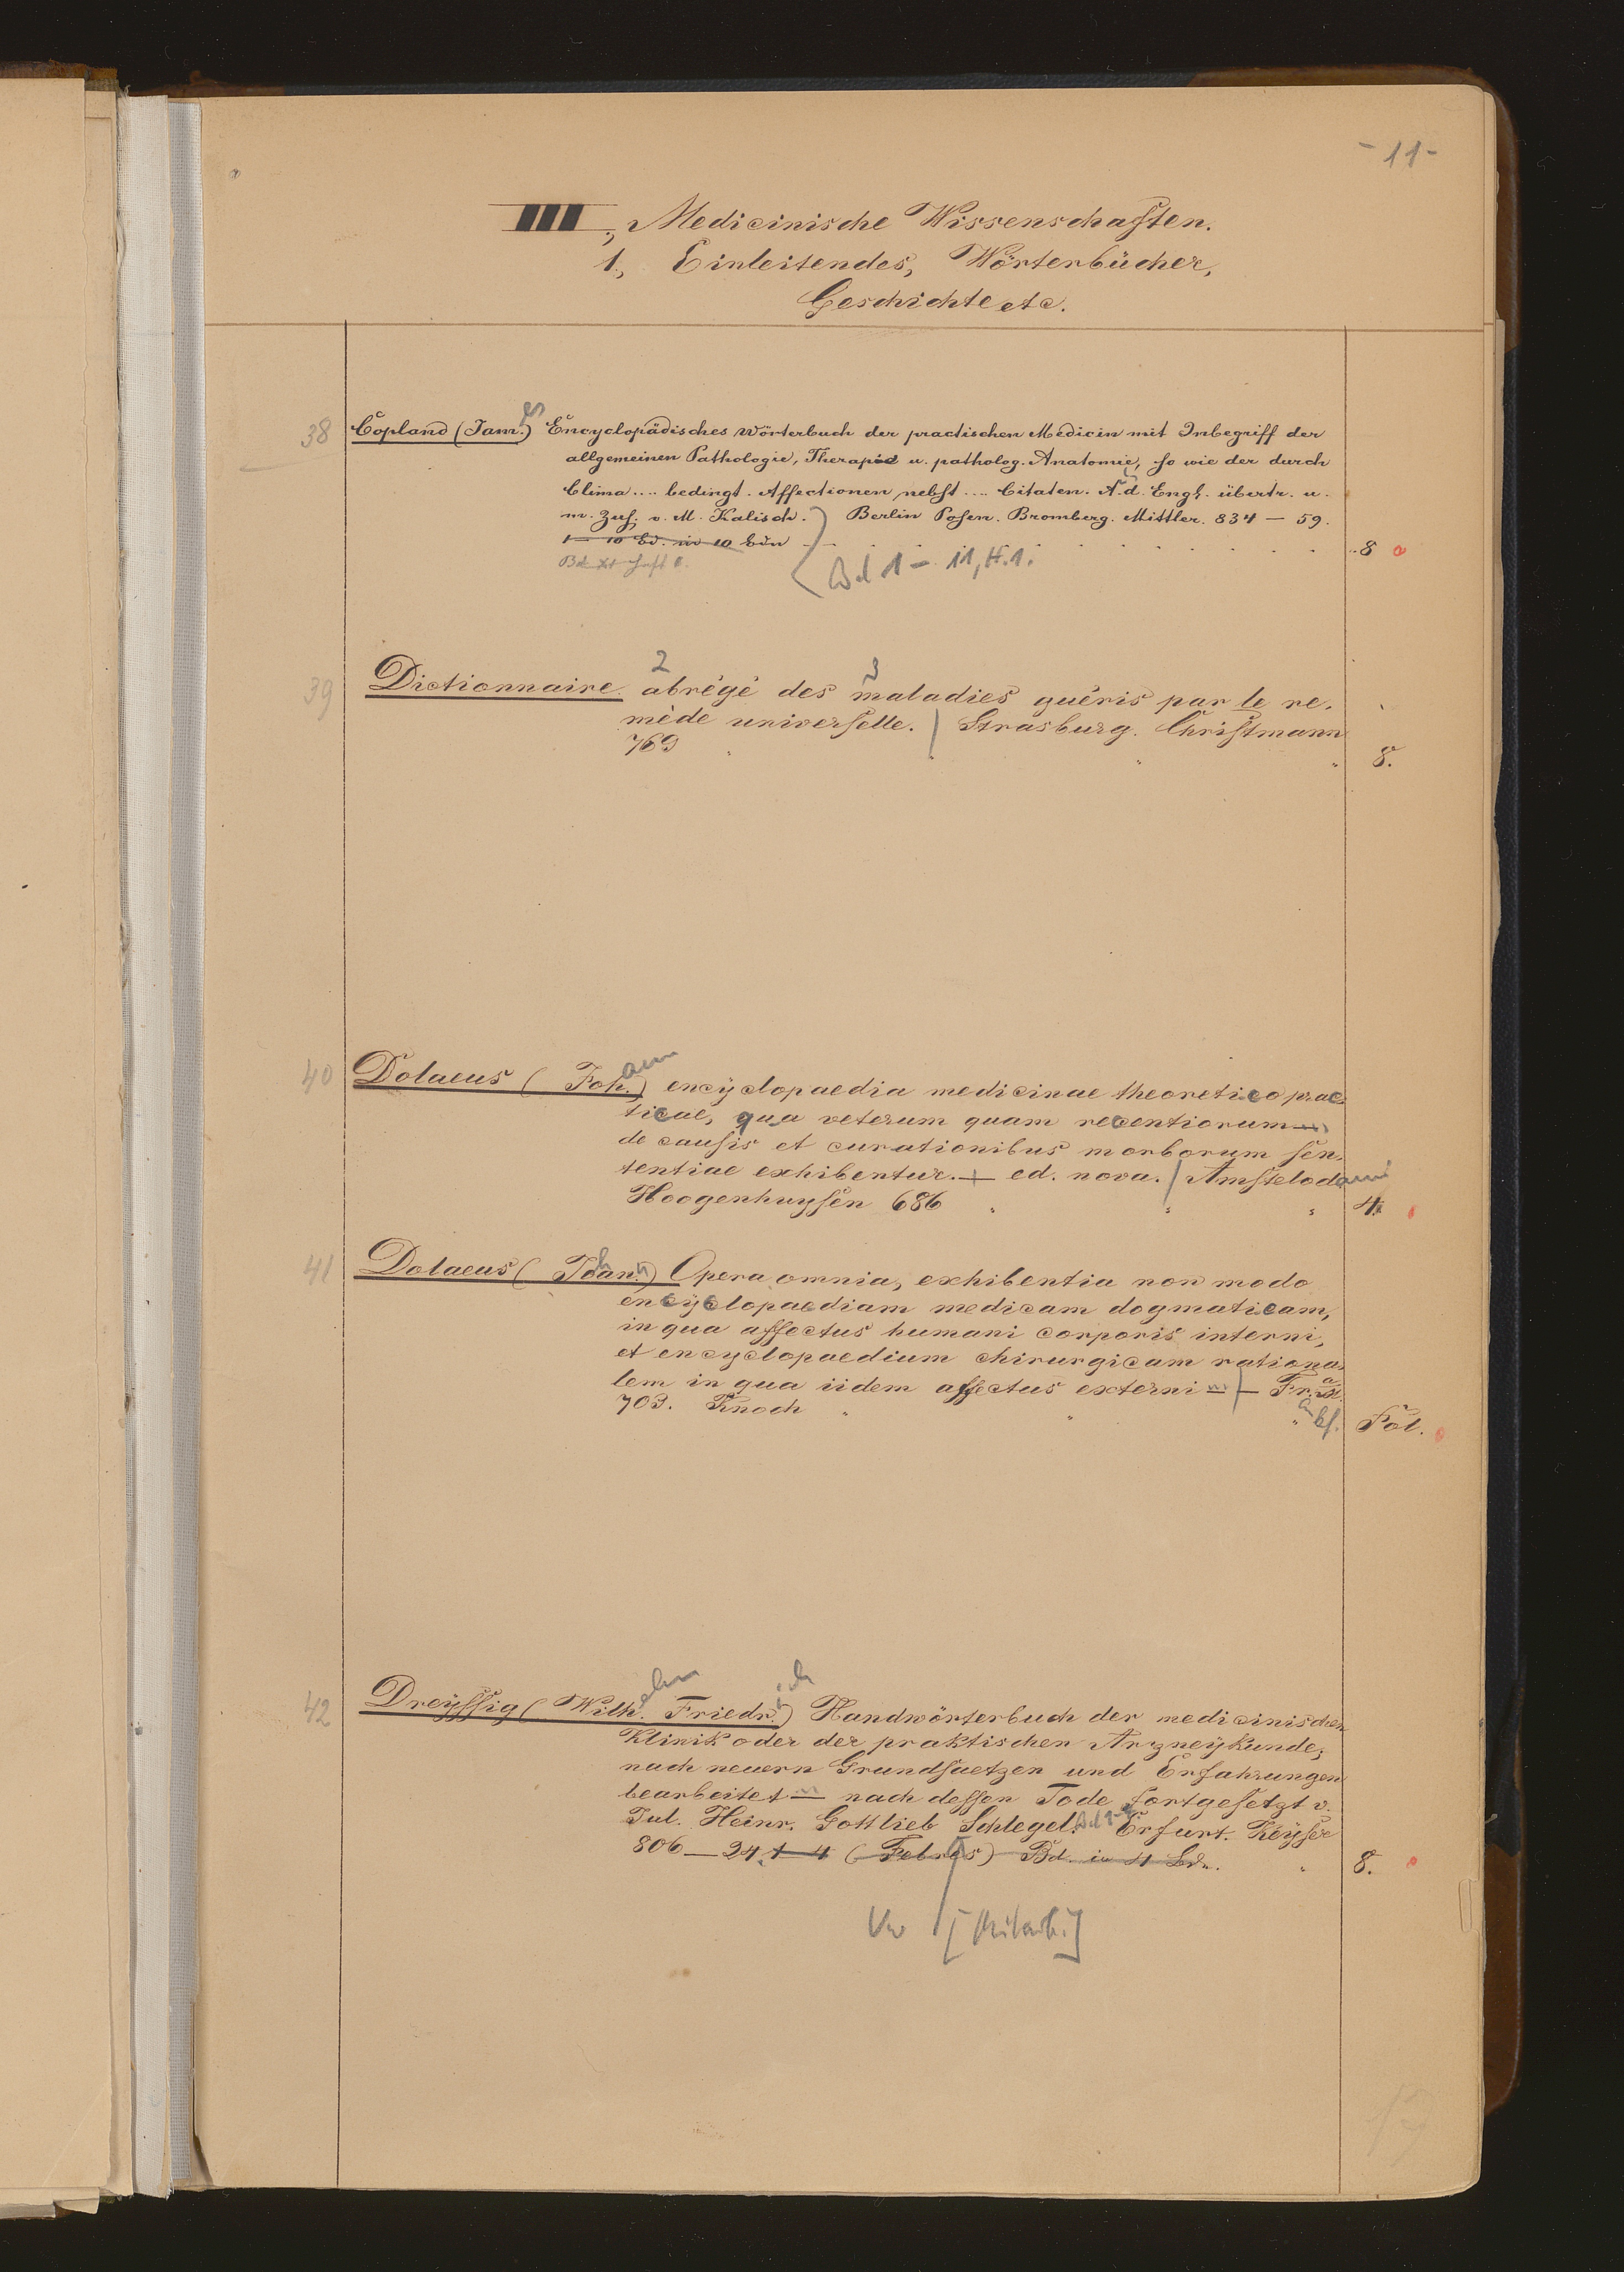 - 11 -
III., Medicinische Wissenschaften.
1., Einleitendes, Wörterbücher,
Geschichte etc.
38 Copland (Jam.es) Encyclopädisches Wörterbuch der practischen Medicin mit Inbegriff der
allgemeinen Pathologie, Therapie u. patholog. Anatomie, so wie der durch
Clima .... bedingt. Affectionen nebst .... Citaten. A. d. Engl. übertr. u.
m. Zus. v. M. Kalisch. Berlin Posen. Bromberg. Mittler. 834 — 59.
1 — 10 Bd. in 10 Bdn 8
Bd 1 - 11, H. 1.
39 Dictionnaire 2 abrégé des 3 maladies guéris par le re-
mède universelle. / Strasburg. Christmann
769 8.
40 Dolaeus (Joh.ann) encyclopaedia medicinae theoretico prac-
ticae, qua veterum quam recentiorum —
de causis et curationibus morborum sen-
tentiae exhibentur. — ed. nova. / Amstelodami
Hoogenhuysen 686 4.
41 Dolaeus (Johann) Opera omnia, exhibentia non modo
encyclopaediam medicam dogmaticam,
in qua affectus humani corporis interni,
et encyclopaedium chirurgicam rationa-
lem in qua iidem affectus externi — / — Fr. a.
703. Knoch Fol.
42 Dreyssig (Wilh.elm Friedr.ich) Handwörterbuch der medicinischen
Klinik oder der praktischen Arzneykunde,
nach neuern Grundsaetzen und Erfahrungen
bearbeitet — nach dessen Tode fortgesetzt v.
Jul. Heinr. Gottlieb Schlegel. Bd 1-4. Erfurt. Keyser
806 — 24. 1 — 4 (Febres) Bd. in 4 Bdn. 8.
Vw [Mitarb.]